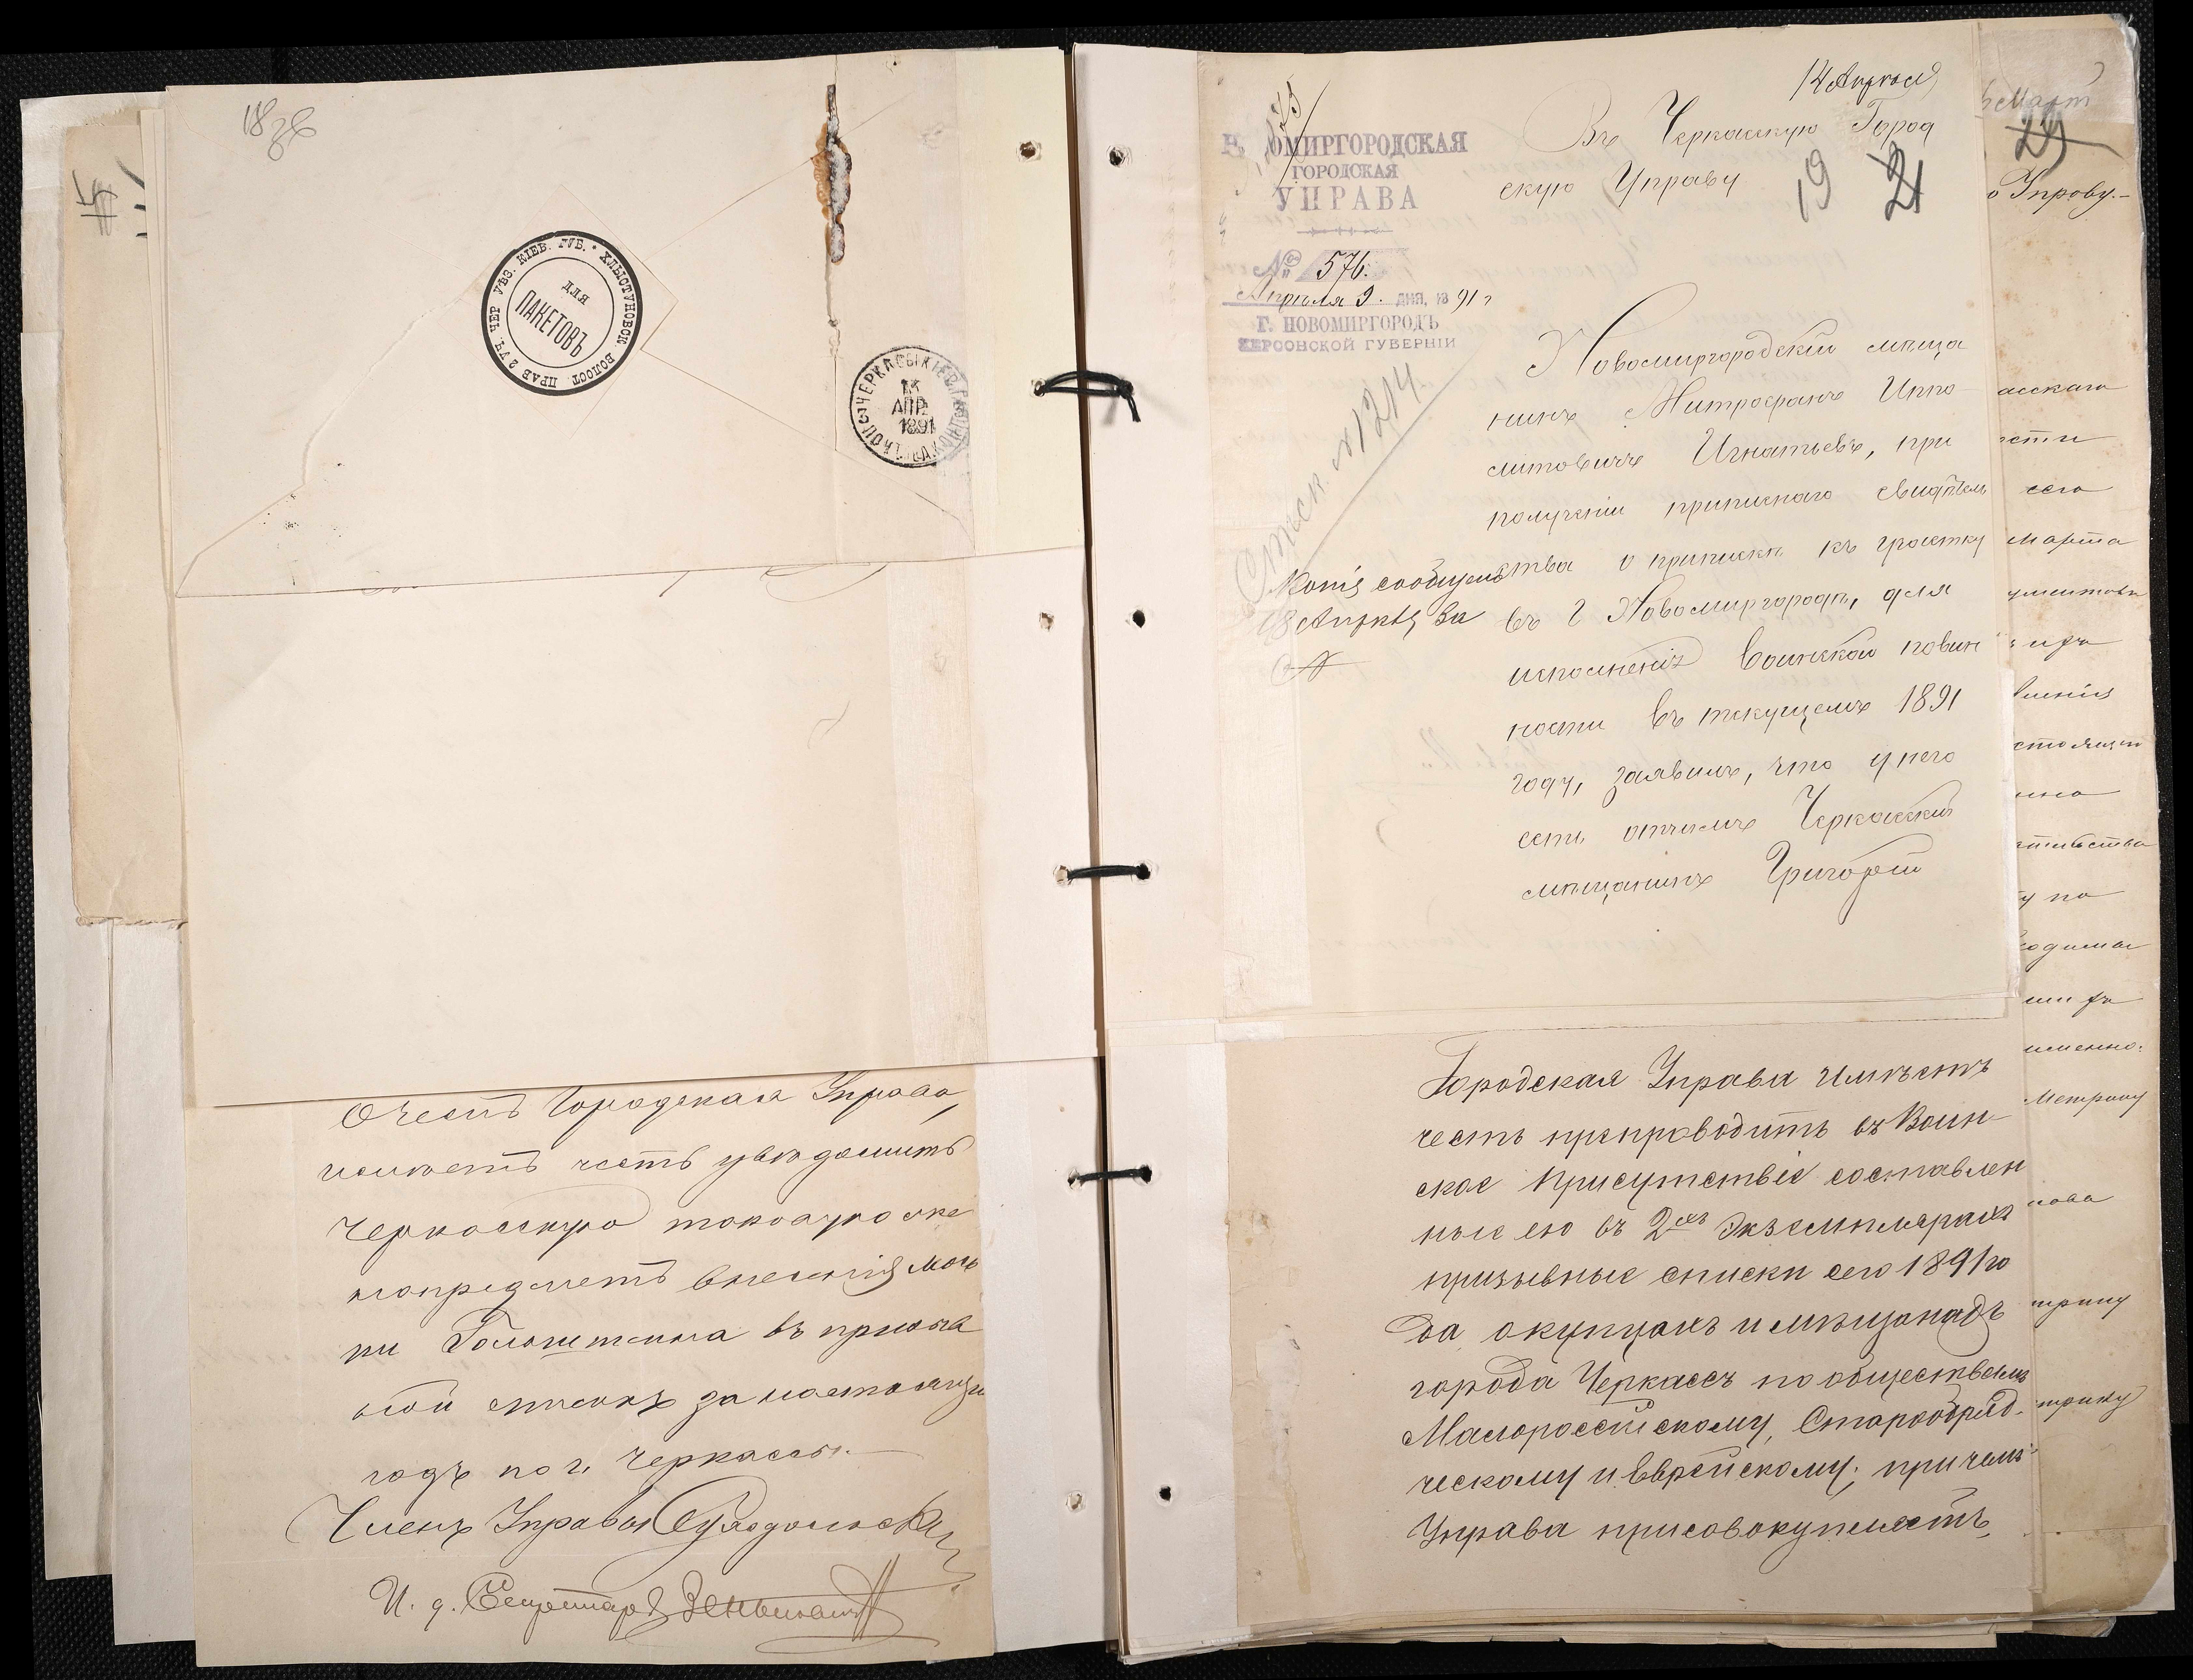 ХЛЫСТУНОВСК. ВОЛОСТ. ПРАВ. 2 УЧ. ЧЕР. УѢЗ. КІЕВ. ГУБ.
ДЛЯ
ПАКЕТОВЪ
ЧЕРКАСЫ КІЕВ.
АПР.
1891
О чемъ Городская Управа
имѣетъ честь увѣдомить
Черкасскую таковую же
на предметъ внесенія
въ призыв
ной списокъ за настоящій
годъ по г. Черкассы.
Членъ Управы
И. д. Секретаря
14 Апрѣля
Въ Черкасскую Город
скую Управу
19 21
НОВОМИРГОРОДСКАЯ
ГОРОДСКАЯ
УПРАВА
№ 576.
Апрѣля 9. дня, 1891 г
Г. НОВОМИРГОРОДЪ
ХЕРСОНСКОЙ ГУБЕРНІИ
№ 1214
Новомиргородскій мѣща
нинъ Митрофанъ Иппо
литовичъ Игнатьевъ, при
полученіи приписнаго свидѣтель
ства о припискѣ къ участку
въ г Новомиргородѣ, для
исполненія воинской повин
ности въ текущемъ 1891
году, заявилъ, что у него
есть отчимъ Черкасскій
мѣщанинъ Григорій
Копія сообщена
18 Апрѣля за
№
Городская Управа имѣетъ
честь препроводить въ Воин
ское Присутствіе составлен
ные ею въ 2хъ экземплярахъ
призывные списки сего 1891 го
да о купцахъ и мѣщанахъ
города Черкассъ по обществамъ
Малороссійскому, Старообряд
ческому и Еврейскому; при чемъ
Управа присовокупляетъ,
Март
29
о Управу.-
асскаго
сти
сего
Марта
ументовъ
ленія
на
у по
ходима
именно:
Метрику
нова
трику
трику